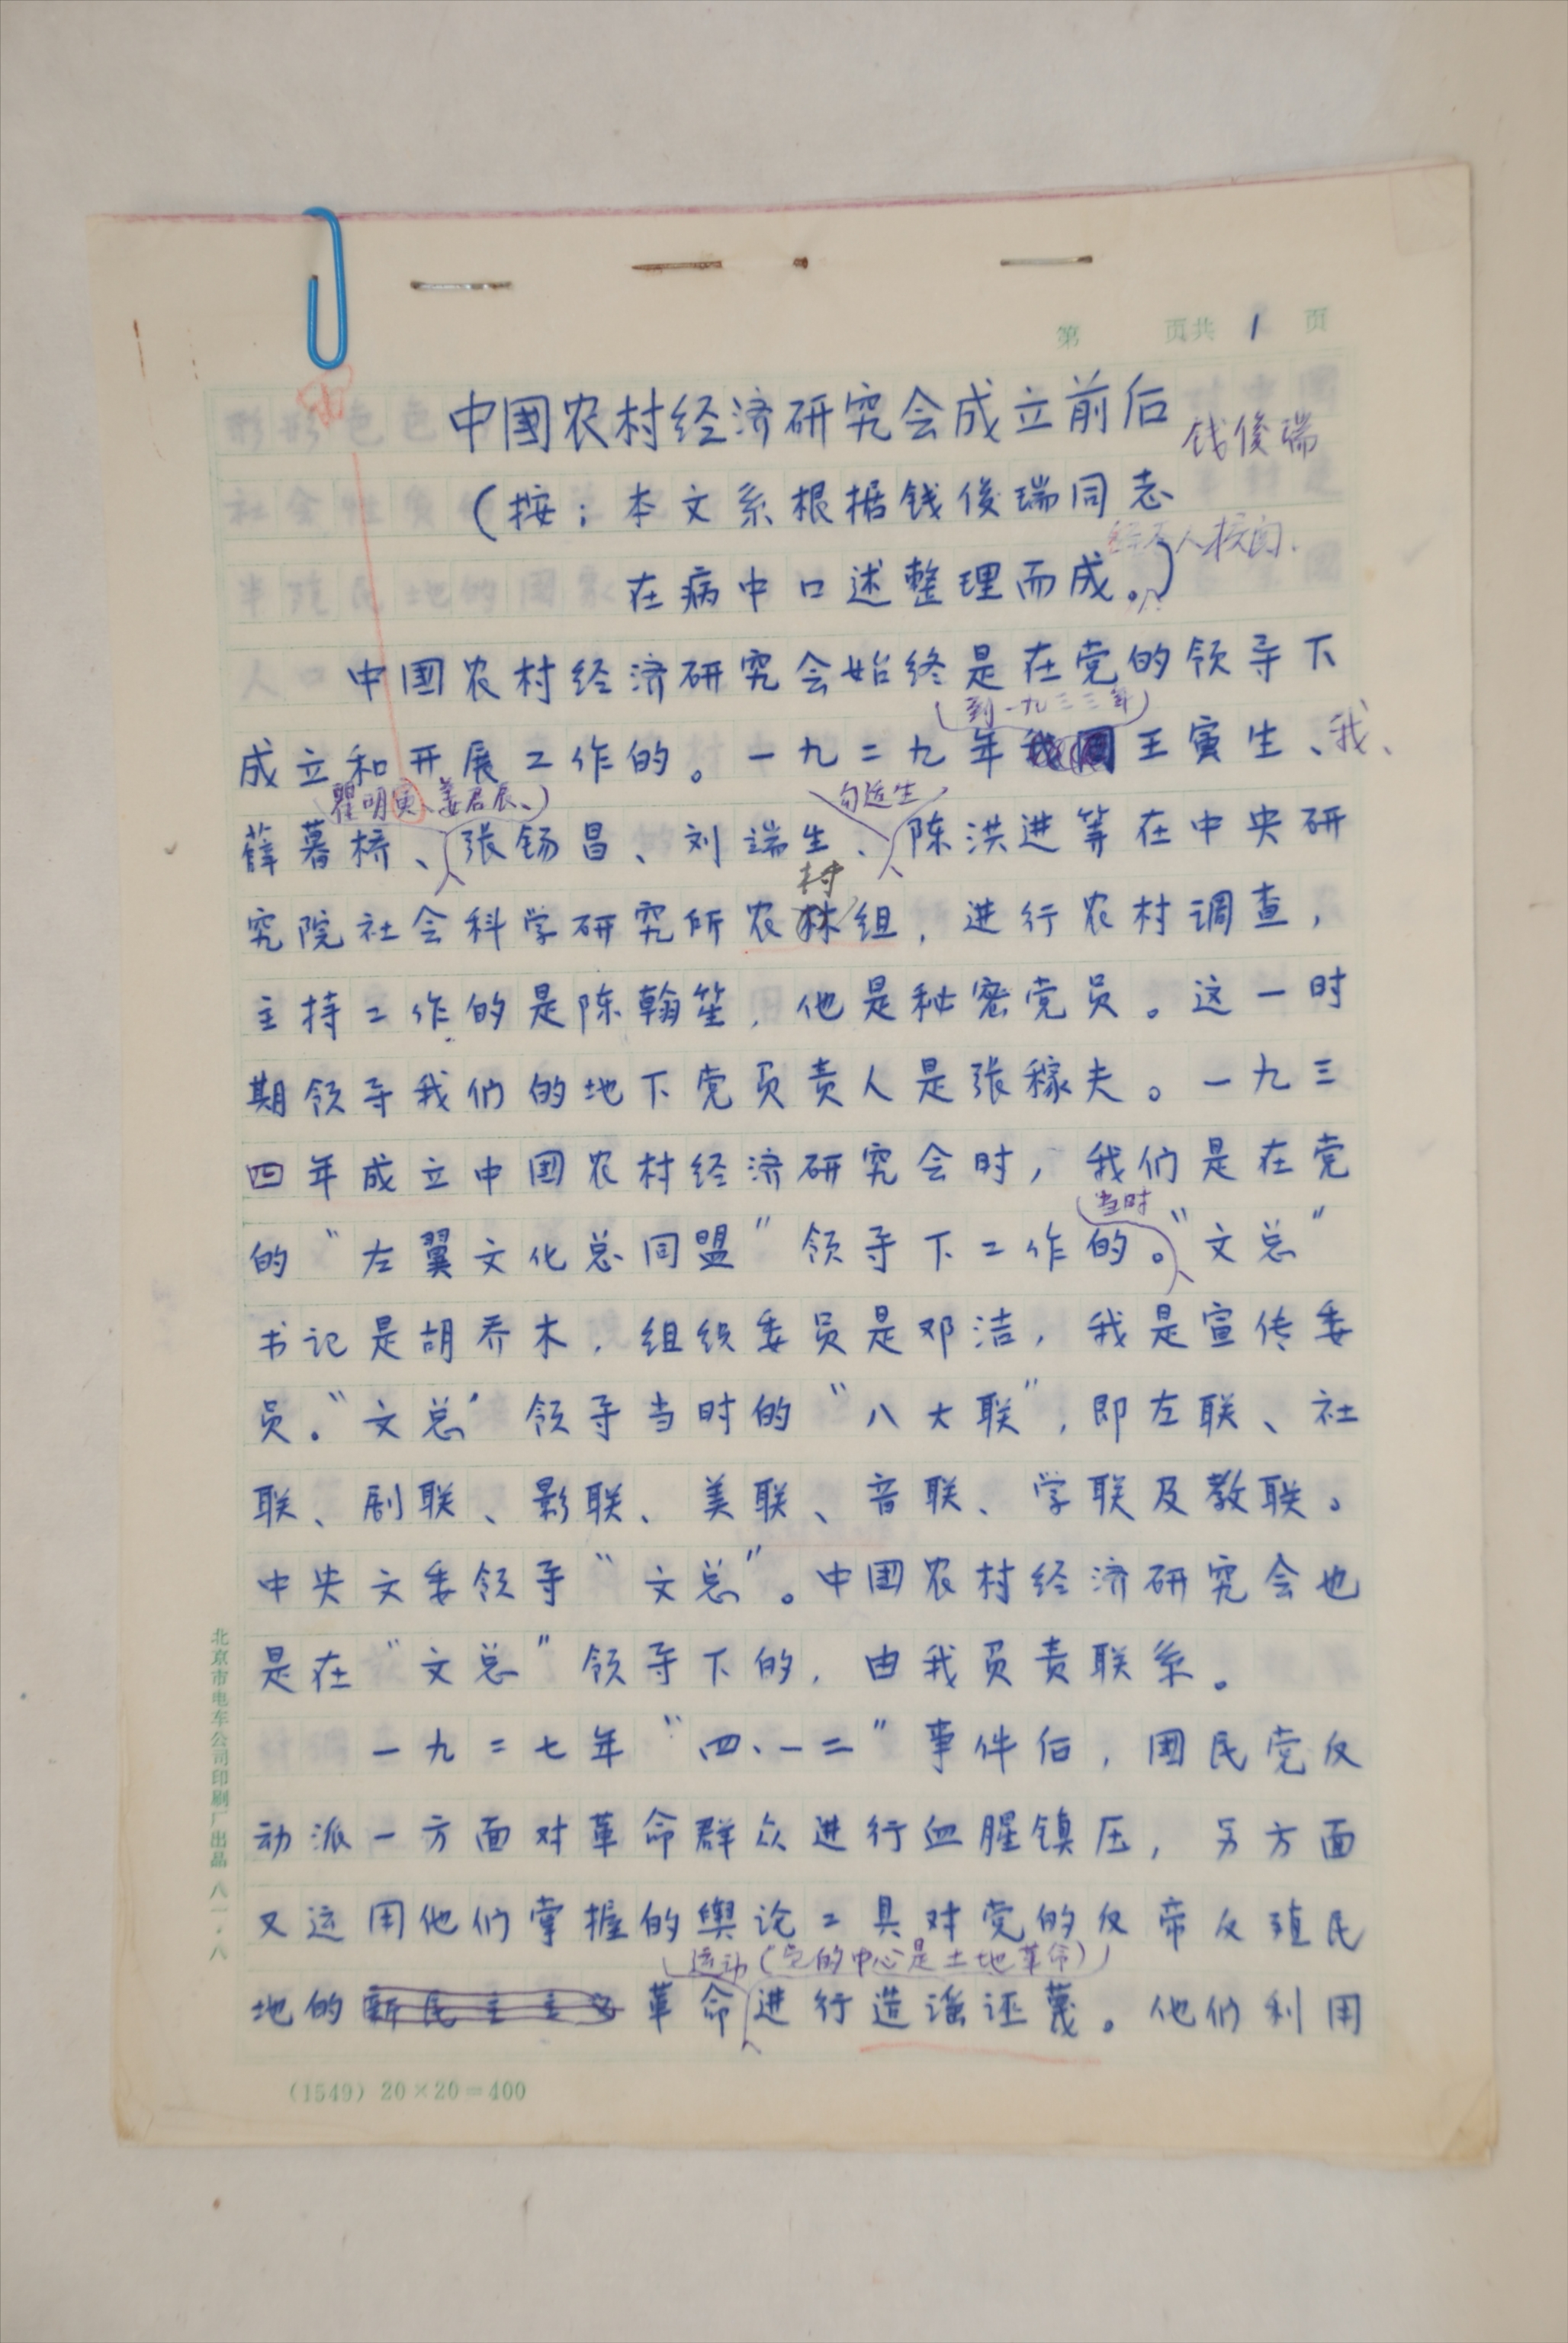 第 页共 1 页
中國农村经济研究会成立前后
钱俊瑞
(按：本文系根据钱俊瑞同志
人校阅.
在病中口述整理而成。)
中國农村经济研究会始终是在党的领导下
到一九三三年
成立和开展工作的。一九二九年王寅生、我、
瞿明宙、姜君辰、
勾适生
薛暮桥、张锡昌、刘端生、陈洪进等在中央研
村
究院社会科学研究所农林组，进行农村调查，
主持工作的是陈翰笙，他是秘密党员。这一时
期领导我们的地下党负责人是张稼夫。一九三
四年成立中国农村经济研究会时，我们是在党
当时
的“左翼文化总同盟”领导下工作的。“文总”
书记是胡乔木，组织委员是邓洁，我是宣传委
员。“文总”领导当时的“八大联”，即左联、社
联、剧联、影联、美联、音联、学联及教联。
中央文委领导“文总”。中国农村经济研究会也
是在“文总”领导下的，由我负责联系。
一九二七年“四、一二”事件后，国民党反
动派一方面对革命群众进行血腥镇压，另方面
又运用他们掌握的舆论工具对党的反帝反殖民
运动(党的中心是土地革命)
地的新民主主义革命进行造谣诬蔑。他们利用
北京市电车公司印刷厂出品 八一·八
(1549) 20×20=400